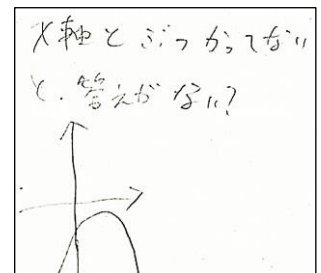 X軸とぶつかってない
と、答えがない?